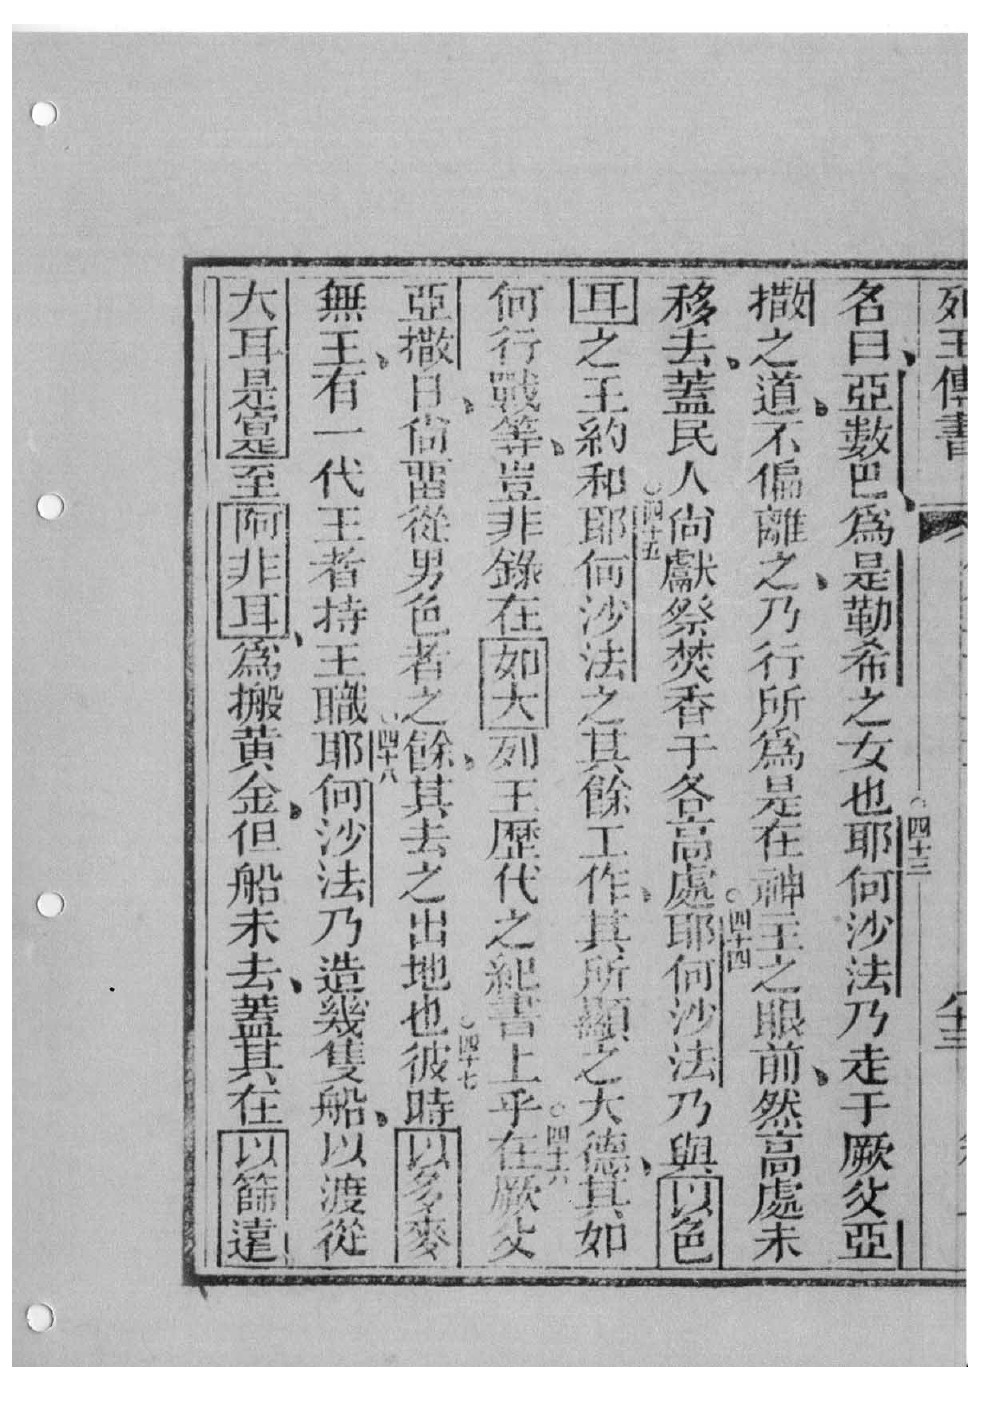 列王傳書
名曰亞數巴爲是勒希之女也○四十三耶何沙法乃走于厥父亞
撒之道不偏離之乃行所爲是在神主之眼前然高處未
移去蓋民人尙獻祭焚香于各高處○四十四耶何沙法乃與以色
耳之王約和○四十五耶何沙法之其餘工作其所顯之大德其如
何行戰等豈非錄在如大列王歷代之紀書上乎○四十六在厥父
亞撒日尙畱從男色者之餘其去之出地也○四十七彼時以多麥
無王有一代王者持王職○四十八耶何沙法乃造幾隻船以渡從
大耳是寔至阿非耳爲搬黃金但船未去蓋其在以篩遠